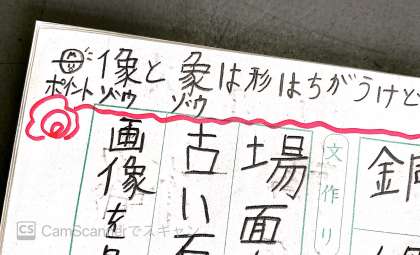 ポイント
像と象は形はちがうけど
ゾウ ゾウ
文作り
場面
古い
画像を
CS CamScannerでスキャン